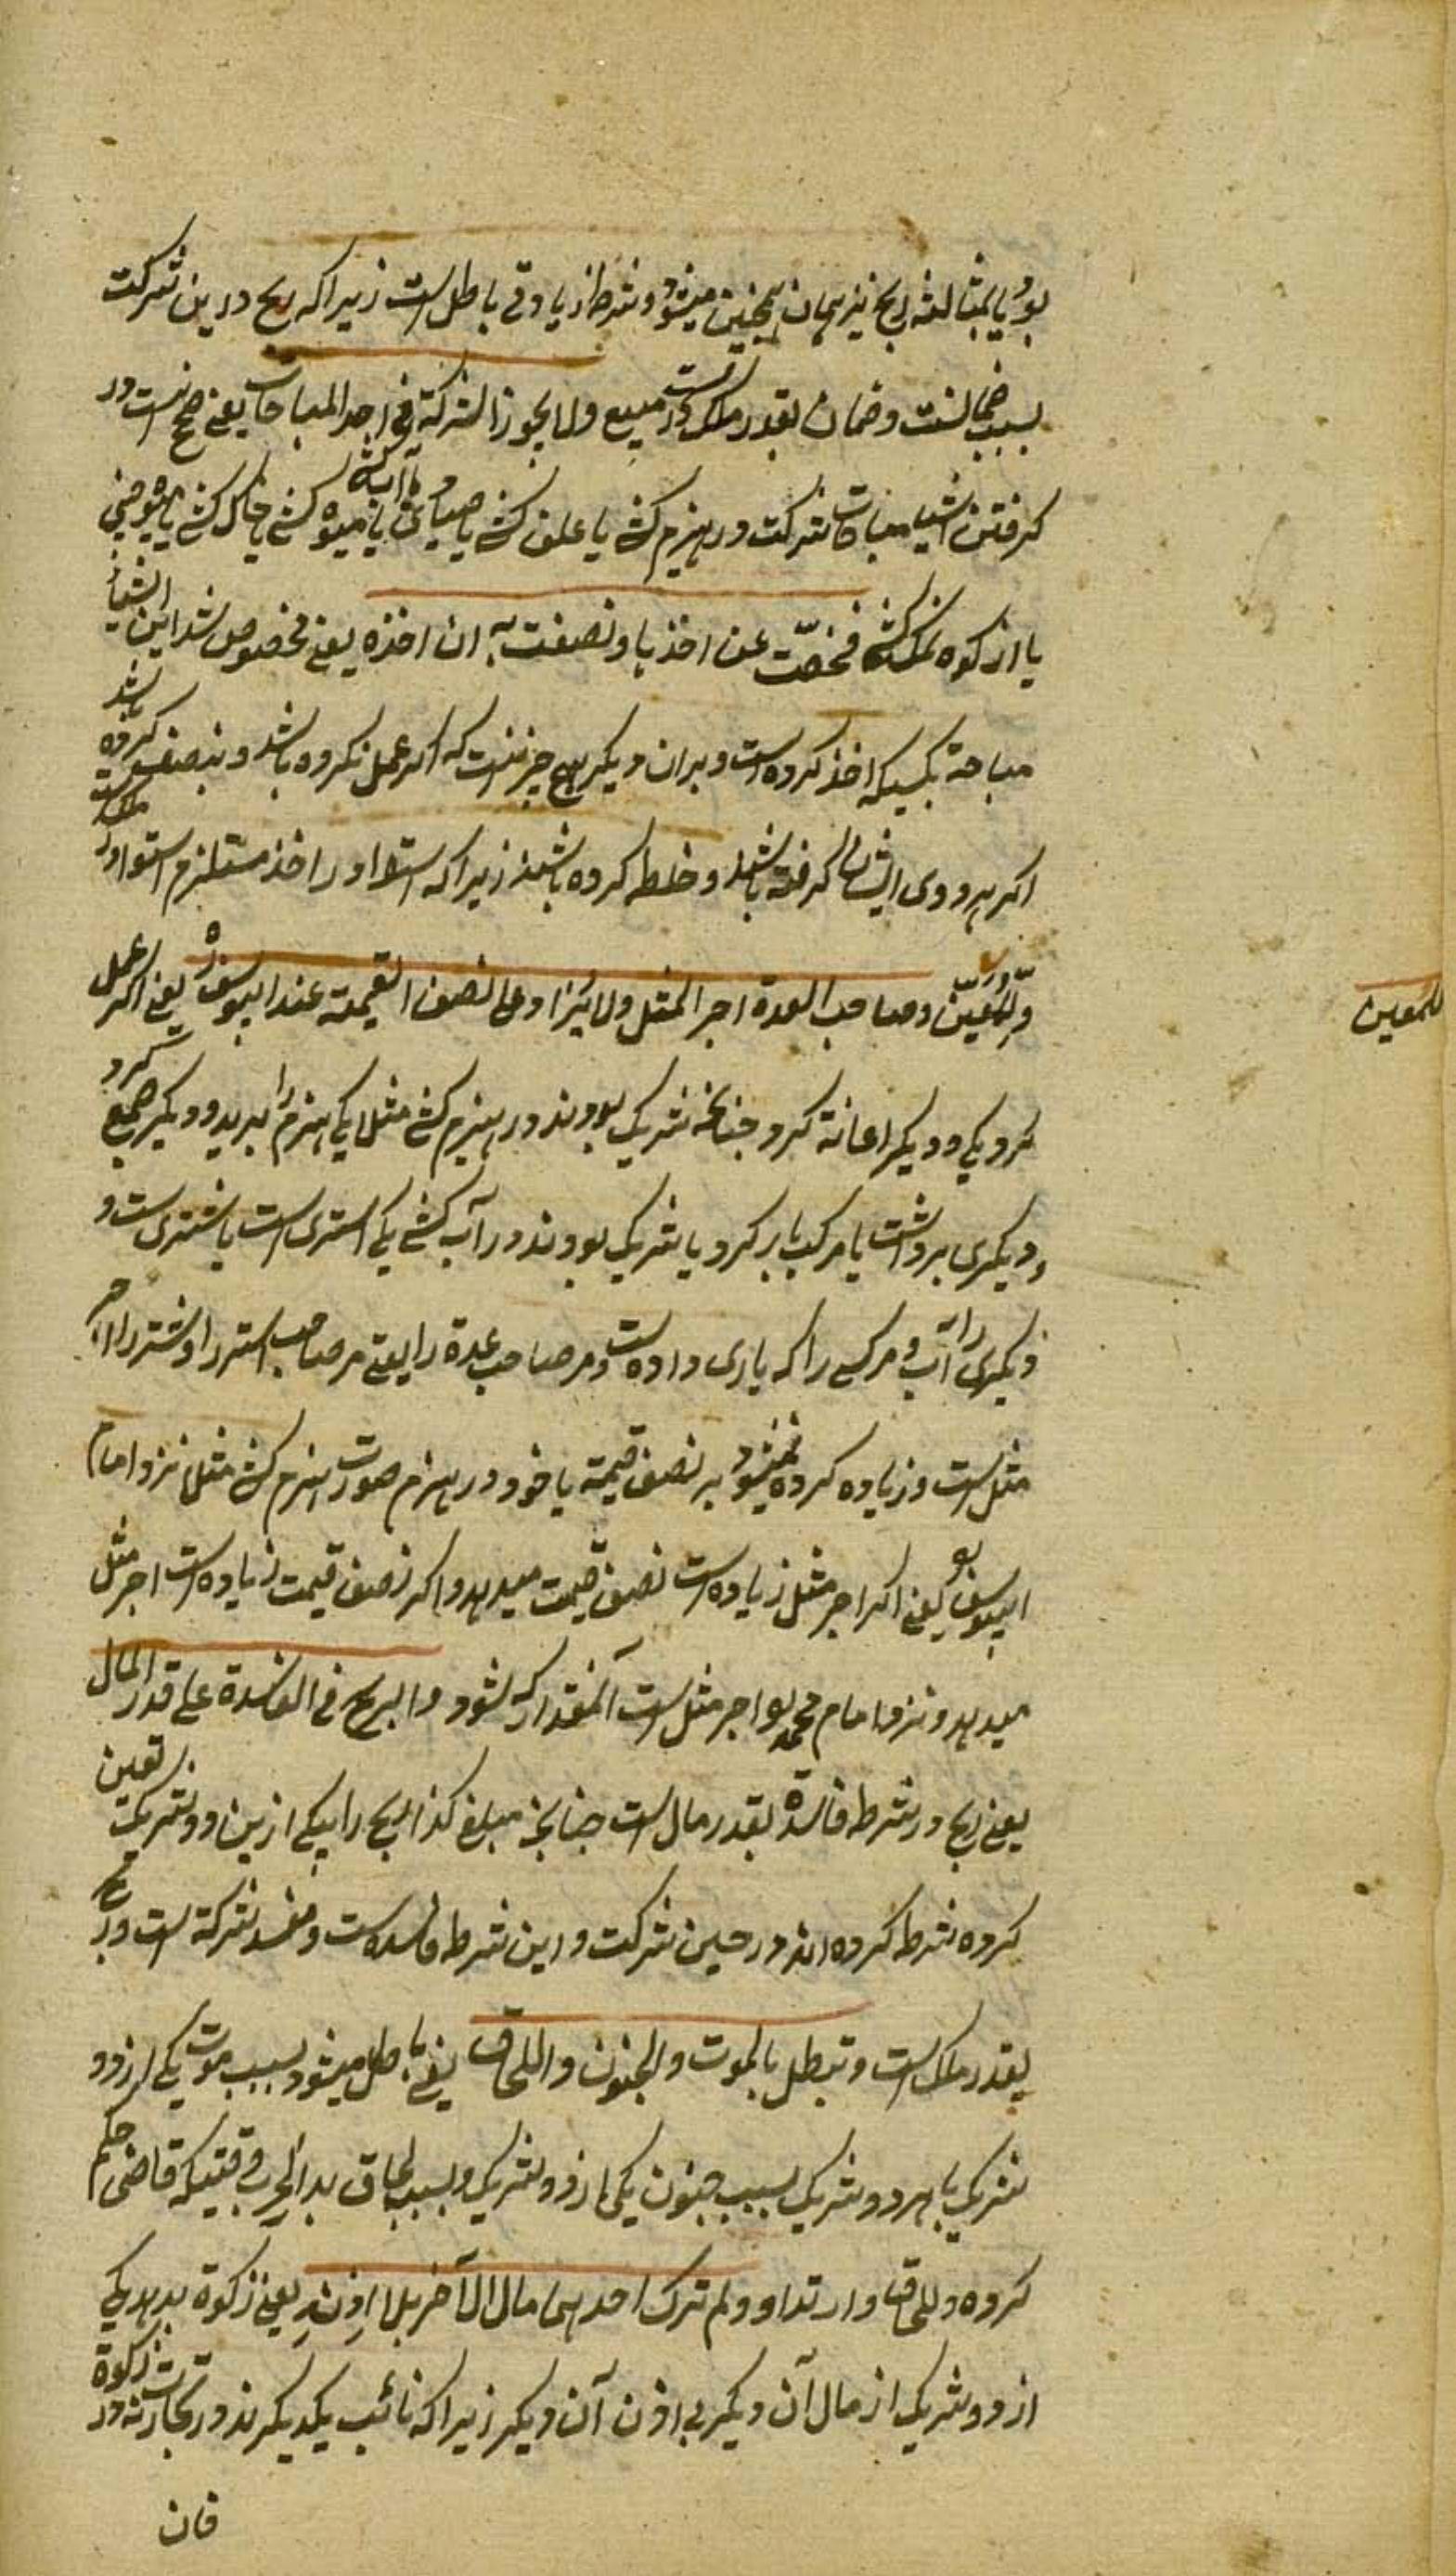 بود یا بمثالثه ربح نیز همان همچنین میشود و شرط زیادتی باطل است زیرا که ربح درین شرکت
بسبب ضمانست و ضمان بقدر ملک است در مبیع ولا یجوز الشرکة فی اخذ المباحات یعنی صحیح نیست در
کرفتن اشیا مباحات شرکت در هیزم کشی یا علف کشی یا صیادی یا آب کشی یا میوه کشی یا خاک کشی یا
یا از کوه نمک کشی فخصّت عن اخذ با و نصفت به ان اخذه یعنی مخصوص شد این اشیاء
مباحة بکسیکه اخذ کرده است و بران دیکر هیچ چیز نیست که اکر عمل نکرده باشد و بنصف کرده شد
اکر هر دوی ایشان کرفته باشند و خلط کرده باشند زیرا که استوا در اخذ مستلزم استوا در ملک است
و للمعین و صاحب العدة اجر المثل ولا یزاد علی نصف القیمة عند ابیوسف ره یعنی اکر عمل
کرد یکی و دیکر اعانة کرد چنانچه شریک بودند در هیزم کشی مثلا یکی هیزم را برید و دیکر جمع کرد
و دیکری برداشت یا بر مرکب بار کرد یا شریک بودند در آب کشی یکی استری است یا شتری است و
دیکری را آب و مر کسی را که یاری داده است و مر صاحب عدة را یعنی مر صاحب استر را و شتر را اجر
مثل است و زیاده کرده نمیشود بر نصف قیمة یا خود در هیزم صورت هیزم کشی مثلا نزد امام
ابیوسف یعنی اکر اجر مثل زیاده است نصف قیمت میدهد و اکر نصف قیمت زیاده است اجر مثل
میدهد و نزد امام محمد اجر مثل است آنمقدار که بشود و الربح فی الفاسدة علی قدر المال
یعنی ربح در شرط فاسده بقدر مال است چنانچه مبلغ کذا ربح را بیکی ازین دو شریک تعین
کرده شرط کرده اند در حین شرکت و این شرط فاسد است و مفسد شرکة است و ربح
بقدر ملک است و تبطل بالموت و الجنون و اللحاق یعنی باطل میشود بسبب موت یکی از دو
شریک یا هر دو شریک بسبب جنون یکی از دو شریک و بسبب لحاق بدار الحرب وقتیکه قاضی حکم
کرده و للحاق و ارتداد و لم ترک احدهما مال الآخر بلا اذنه یعنی زکوة بدهد یکی
از دو شریک از مال آن دیکر بی اذن آن دیکر زیرا که نائب یکدیکرند در تجارت نه در زکوة
فان
للمعین